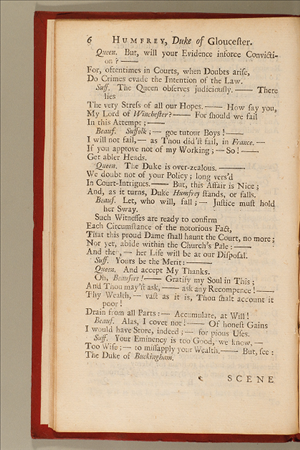 6 HUMFREY, Duke of Gloucester.
Queen. But, will your Evidence inforce Convicti-
on? ——
For, oftentimes in Courts, when Doubts arise,
Do Crimes evade the Intention of the Law.
Suff. The Queen observes judiciously. —— There
lies
The very Stress of all our Hopes. —— How say you,
My Lord of Winchester? —— For should we fail
In this Attempt; ——
Beauf. Suffolk; — goe tutour Boys! ——
I will not fail, — as Thou did'st fail, in France. —
If you approve not of my Working; — So! ——
Get abler Heads.
Queen. The Duke is over-zealous. ——
We doubt not of your Policy; long vers'd
In Court-Intrigues. —— But, this Affair is Nice;
And, as it turns, Duke Humfrey stands, or falls.
Beauf. Let, who will, fall; — Justice must hold
her Sway.
Such Witnesses are ready to confirm
Each Circumstance of the notorious Fact,
That this proud Dame shall haunt the Court, no more;
Nor yet, abide within the Church's Pale: ——
And then, — her Life will be at our Disposal.
Suff. Yours be the Merit: ——
Queen. And accept My Thanks.
Oh, Beaufort! —— Gratify my Soul in This;
And Thou may'st ask, —— ask any Recompence! ——
Thy Wealth, — vast as it is, Thou shalt account it
poor!
Drain from all Parts: — Accumulate, at Will!
Beauf. Alas, I covet not! —— Of honest Gains
I would have Store, indeed; — for pious Uses.
Suff. Your Eminency is too Good, we know, —
Too Wise; — to misapply your Wealth. —— But, see:
The Duke of Buckingham.
SCENE